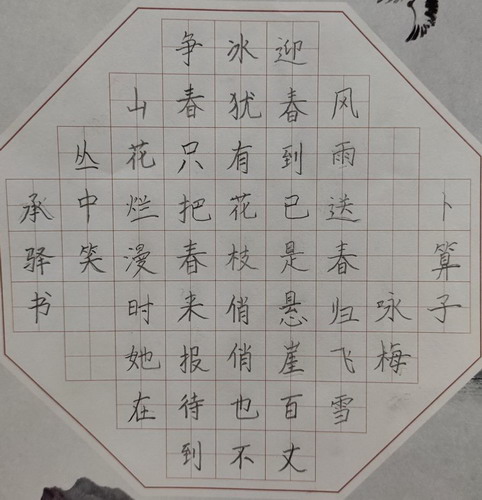 卜算子
咏梅
风雨送春归飞雪
迎春到已是悬崖百丈
冰犹有花枝俏俏也不
争春只把春来报待到
山花烂漫时她在
丛中笑
承驿书